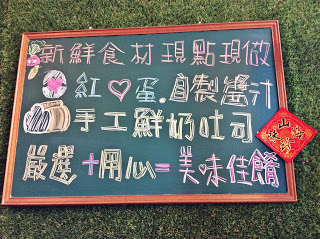 新鮮食材現點現做
紅♡蛋.自製醬汁
手工鮮奶吐司
嚴選+用心=美味佳餚